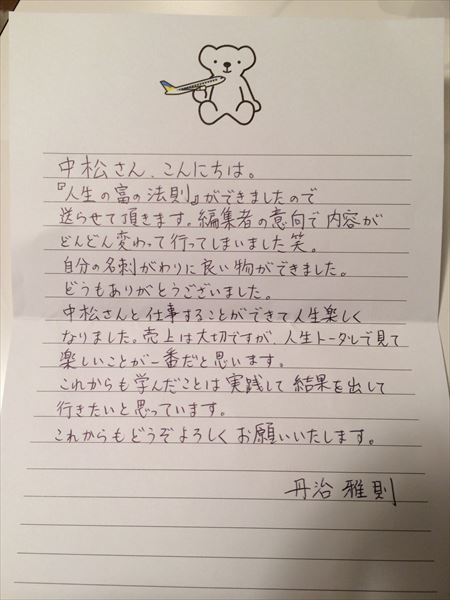 中松さん、こんにちは。
『人生の富の法則』ができましたので
送らせて頂きます。編集者の意向で内容が
どんどん変わって行ってしまいました笑。
自分の名刺がわりに良い物ができました。
どうもありがとうございました。
中松さんと仕事することができて人生楽しく
なりました。売上は大切ですが、人生トータルで見て
楽しいことが一番だと思います。
これからも学んだことは実践して結果を出して
行きたいと思っています。
これからもどうぞよろしくお願いいたします。
丹治雅則